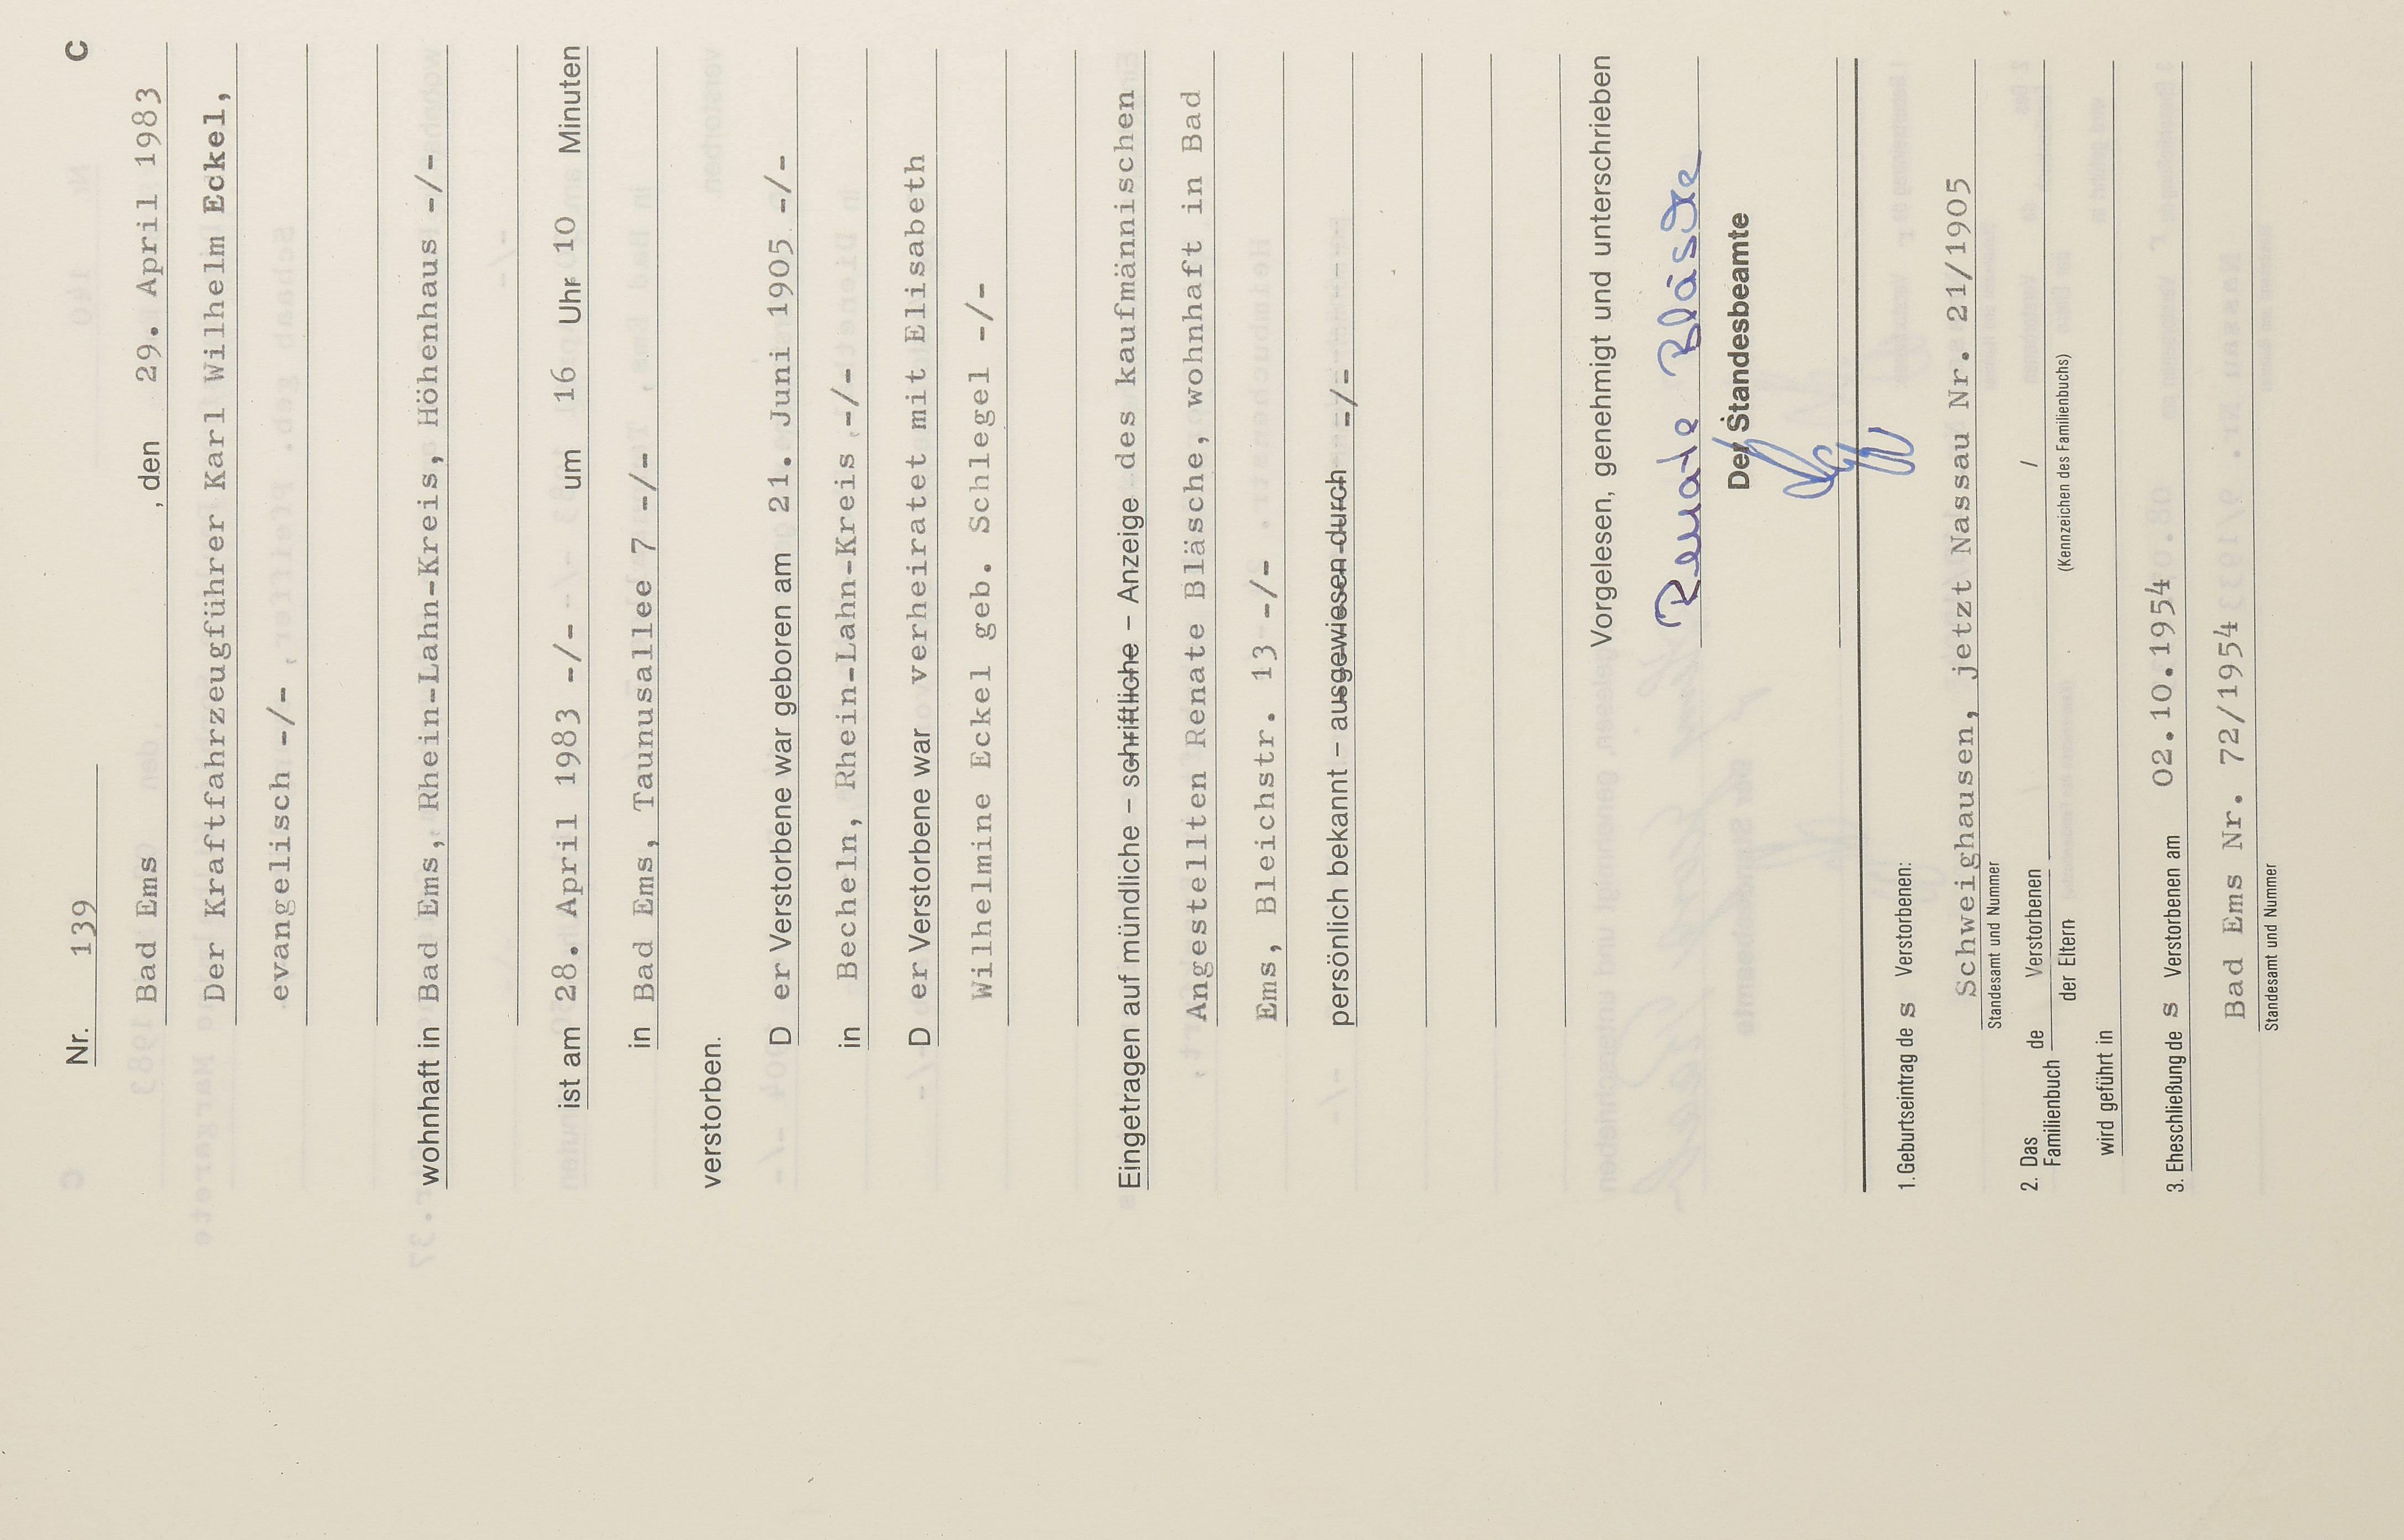 Nr. 139 C
Bad Ems , den 29. April 1983
Der Kraftfahrzeugführer Karl Wilhelm Eckel,
evangelisch -/-
wohnhaft in Bad Ems, Rhein-Lahn-Kreis, Höhenhaus -/-
ist am 28. April 1983 -/- um 16 Uhr 10 Minuten
in Bad Ems, Taunusallee 7 -/-
verstorben.
D er Verstorbene war geboren am 21. Juni 1905 -/-
in Becheln, Rhein-Lahn-Kreis -/-
D er Verstorbene war verheiratet mit Elisabeth
Wilhelmine Eckel geb. Schlegel -/-
Eingetragen auf mündliche – schriftliche – Anzeige des kaufmännischen
Angestellten Renate Bläsche, wohnhaft in Bad
Ems, Bleichstr. 13 -/-
persönlich bekannt – ausgewiesen durch -/-
Vorgelesen, genehmigt und unterschrieben
Renate Bläsche
Der Standesbeamte
1. Geburtseintrag de s Verstorbenen:
Schweighausen, jetzt Nassau Nr. 21/1905
Standesamt und Nummer
2. Das Familienbuch de Verstorbenen /
der Eltern (Kennzeichen des Familienbuchs)
wird geführt in
3. Eheschließung de s Verstorbenen am 02.10.1954
Bad Ems Nr. 72/1954
Standesamt und Nummer